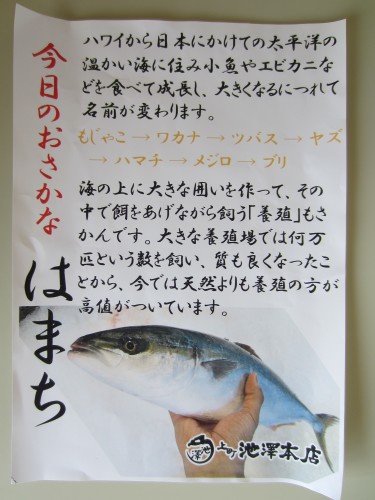 今日のおさかな
はまち
ハワイから日本にかけての太平洋の
温かい海に住み小魚やエビカニな
どを食べて成長し、大きくなるにつれて
名前が変わります。
もじゃこ→ワカナ→ツバス→ヤズ
→ハマチ→メジロ→ブリ
海の上に大きな囲いを作って、その
中で餌をあげながら飼う「養殖」もさ
かんです。大きな養殖場では何万
匹という数を飼い、質も良くなったこ
とから、今では天然よりも養殖の方が
高値がついています。
上町池澤本店